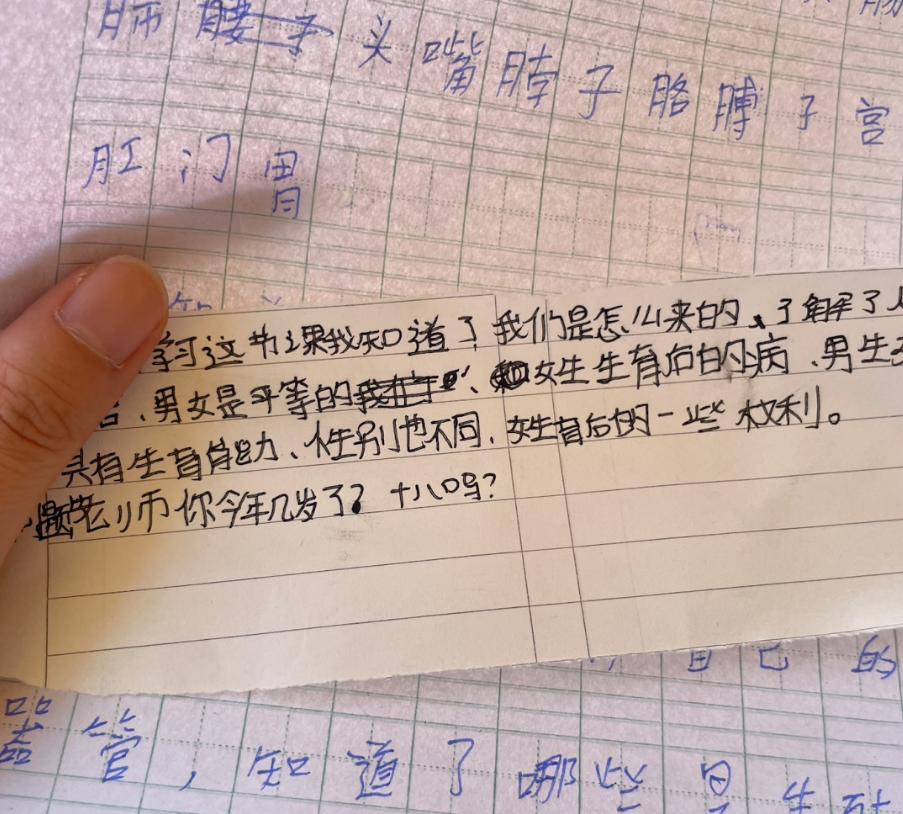 腰子头嘴脖子胳膊子宫
肛门胃
学习这节课我知道了我们是怎么来的、了解了
、男女是平等的我在于、和女生生育后的病、男生
具有生育能力、性别也不同、女生育后的一些权利。
老师你今年几岁了?十八吗?
自己的
器管,知道了哪些是生